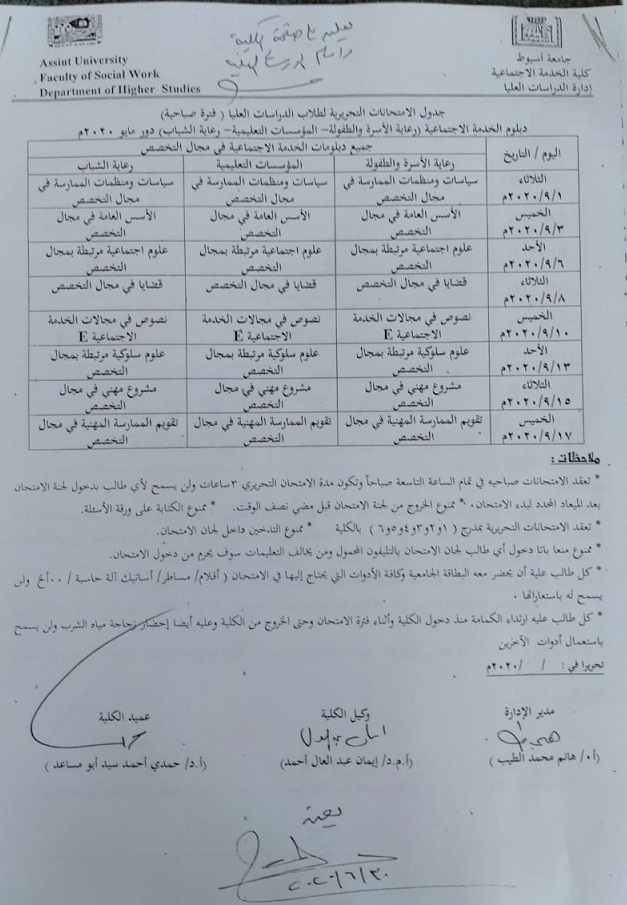 Assiut University
Faculty of Social Work
Department of Higher Studies
جامعة أسيوط
كلية الخدمة الاجتماعية
إدارة الدراسات العليا
جدول الامتحانات التحريرية لطلاب الدراسات العليا ( فترة صباحية)
دبلوم الخدمة الاجتماعية (رعاية الأسرة والطفولة- المؤسسات التعليمية- رعاية الشباب) دور مايو ٢٠٢٠م
اليوم / التاريخ
جميع دبلومات الخدمة الاجتماعية في مجال التخصص
رعاية الأسرة والطفولة
المؤسسات التعليمية
رعاية الشباب
الثلاثاء
٢٠٢٠/٩/١م
سياسات ومنظمات الممارسة في مجال التخصص
سياسات ومنظمات الممارسة في مجال التخصص
سياسات ومنظمات الممارسة في مجال التخصص
الخميس
٢٠٢٠/٩/٣م
الأسس العامة في مجال التخصص
الأسس العامة في مجال التخصص
الأسس العامة في مجال التخصص
الأحد
٢٠٢٠/٩/٦م
علوم اجتماعية مرتبطة بمجال التخصص
علوم اجتماعية مرتبطة بمجال التخصص
علوم اجتماعية مرتبطة بمجال التخصص
الثلاثاء
٢٠٢٠/٩/٨م
قضايا في مجال التخصص
قضايا في مجال التخصص
قضايا في مجال التخصص
الخميس
٢٠٢٠/٩/١٠م
نصوص في مجالات الخدمة الاجتماعية E
نصوص في مجالات الخدمة الاجتماعية E
نصوص في مجالات الخدمة الاجتماعية E
الأحد
٢٠٢٠/٩/١٣م
علوم سلوكية مرتبطة بمجال التخصص
علوم سلوكية مرتبطة بمجال التخصص
علوم سلوكية مرتبطة بمجال التخصص
الثلاثاء
٢٠٢٠/٩/١٥م
مشروع مهني في مجال التخصص
مشروع مهني في مجال التخصص
مشروع مهني في مجال التخصص
الخميس
٢٠٢٠/٩/١٧م
تقويم الممارسة المهنية في مجال التخصص
تقويم الممارسة المهنية في مجال التخصص
تقويم الممارسة المهنية في مجال التخصص
ملاحظات :
* تعقد الامتحانات صباحيه في تمام الساعة التاسعة صباحاً وتكون مدة الامتحان التحريري ٣ساعات ولن يسمح لأي طالب بدخول لجنة الامتحان
بعد الميعاد المحدد لبدء الامتحان. * ممنوع الخروج من لجنة الامتحان قبل مضي نصف الوقت. * ممنوع الكتابة على ورقة الأسئلة.
* تعقد الامتحانات التحريرية بمدرج ( ١و٢و٣و٤و٥و٦ ) بالكلية * ممنوع التدخين داخل لجان الامتحان.
* ممنوع منعا باتا دخول أي طالب لجان الامتحان بالتليفون المحمول ومن يخالف التعليمات سوف يحرم من دخول الامتحان.
* كل طالب علية أن يحضر معه البطاقة الجامعية وكافة الأدوات التي يحتاج إليها في الامتحان ( أقلام/ مساطر/ أساتيك آلة حاسبة /٠٠الخ ولن
يسمح له باستعاراتها .
* كل طالب عليه ارتداء الكمامة منذ دخول الكلية وأثناء فترة الامتحان وحتى الخروج من الكلية وعليه أيضا إحضار زجاجة مياه الشرب ولن يسمح
باستعمال أدوات الآخرين
تحريرا في : / / ٢٠٢٠م
مدير الإدارة
وكيل الكلية
عميد الكلية
(أ٠/ هانم محمد الطيب )
(أ.م.د/ إيمان عبد العال أحمد)
(أ.د/ حمدي أحمد سيد أبو مساعد )
٢٠٢٠/٦/٣٠